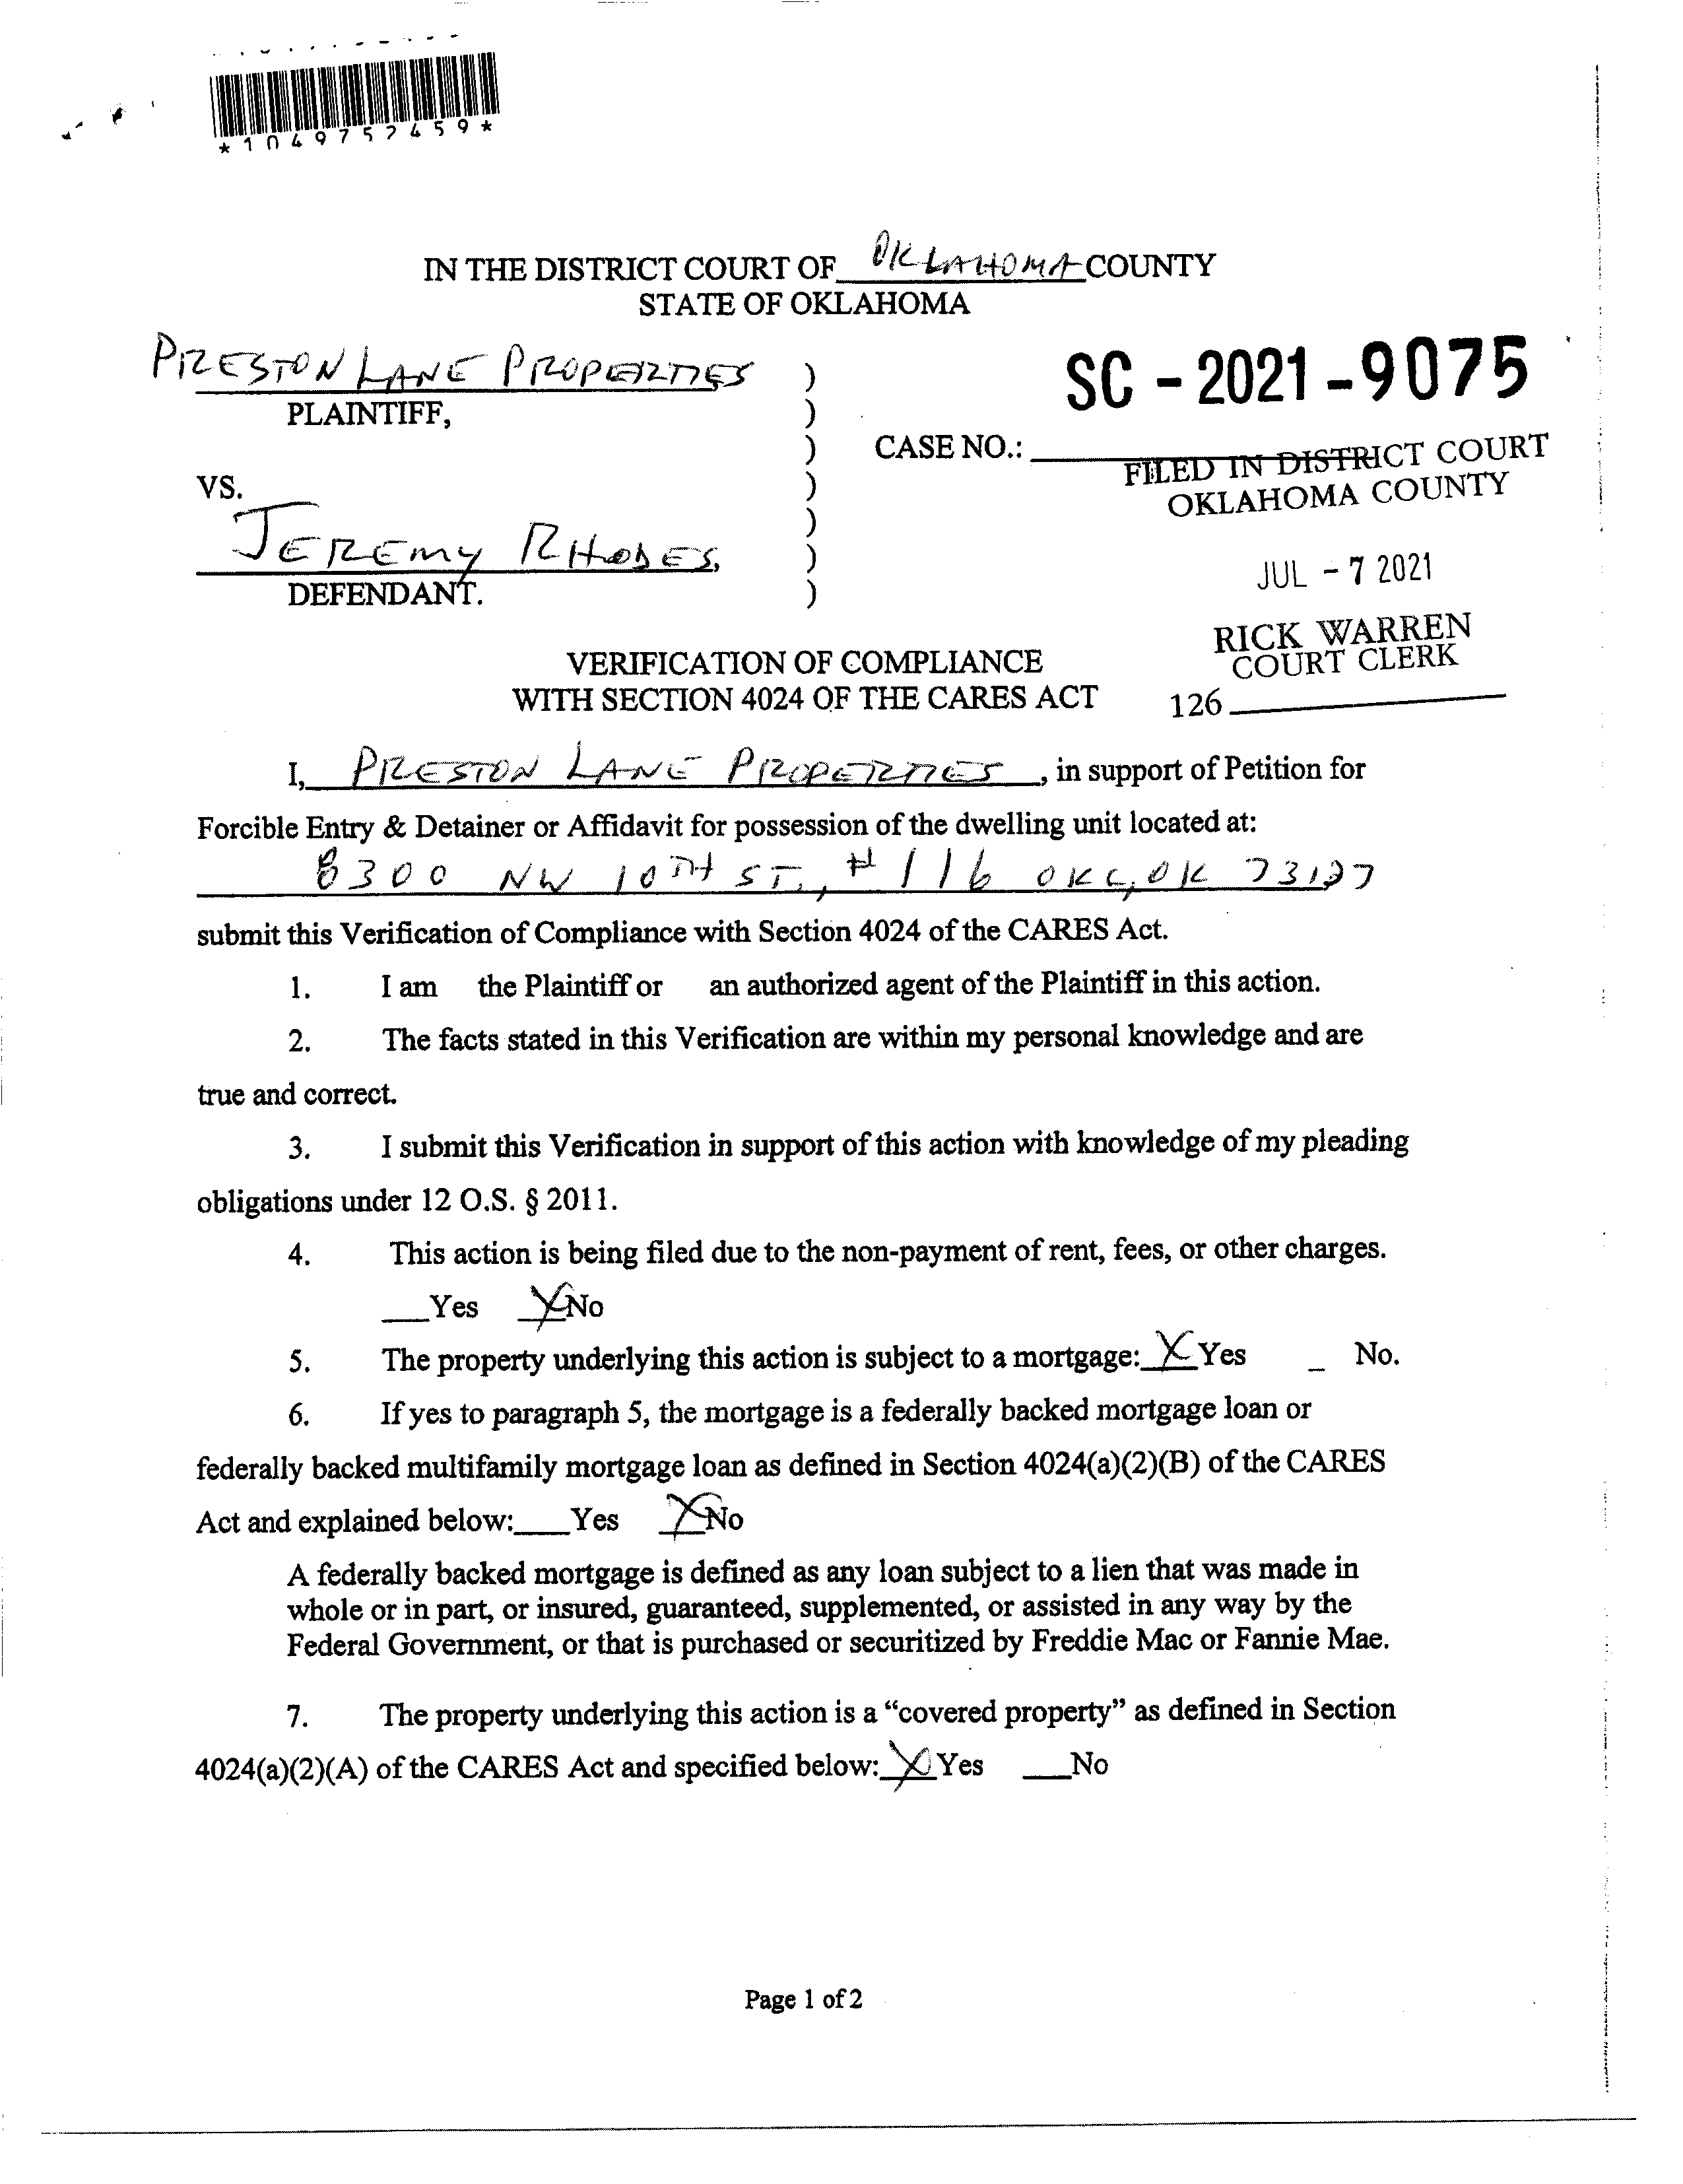 *1049757459*
IN THE DISTRICT COURT OF OKLAHOMA COUNTY
STATE OF OKLAHOMA
PRESTON LANE PROPERTIES )
PLAINTIFF, )
SC - 2021 - 9075
) CASE NO.: ________
FILED IN DISTRICT COURT
OKLAHOMA COUNTY
VS. )
)
JEREMY RHODES, )
DEFENDANT. )
JUL - 7 2021
RICK WARREN
COURT CLERK
126 ________
VERIFICATION OF COMPLIANCE
WITH SECTION 4024 OF THE CARES ACT
I, PRESTON LANE PROPERTIES, in support of Petition for
Forcible Entry & Detainer or Affidavit for possession of the dwelling unit located at:
8300 NW 10TH ST., #116 OKC, OK 73127
submit this Verification of Compliance with Section 4024 of the CARES Act.
1. I am the Plaintiff or an authorized agent of the Plaintiff in this action.
2. The facts stated in this Verification are within my personal knowledge and are
true and correct.
3. I submit this Verification in support of this action with knowledge of my pleading
obligations under 12 O.S. § 2011.
4. This action is being filed due to the non-payment of rent, fees, or other charges.
___Yes _X_No
5. The property underlying this action is subject to a mortgage:_X_Yes _ No.
6. If yes to paragraph 5, the mortgage is a federally backed mortgage loan or
federally backed multifamily mortgage loan as defined in Section 4024(a)(2)(B) of the CARES
Act and explained below:___Yes _X_No
A federally backed mortgage is defined as any loan subject to a lien that was made in
whole or in part, or insured, guaranteed, supplemented, or assisted in any way by the
Federal Government, or that is purchased or securitized by Freddie Mac or Fannie Mae.
7. The property underlying this action is a “covered property” as defined in Section
4024(a)(2)(A) of the CARES Act and specified below:_X_Yes ___No
Page 1 of 2